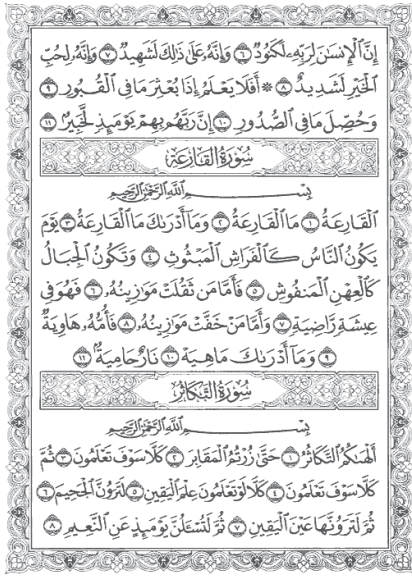 إِنَّ ٱلْإِنسَٰنَ لِرَبِّهِۦ لَكَنُودٌ ٦ وَإِنَّهُۥ عَلَىٰ ذَٰلِكَ لَشَهِيدٌ ٧ وَإِنَّهُۥ لِحُبِّ
ٱلْخَيْرِ لَشَدِيدٌ ٨ ۞ أَفَلَا يَعْلَمُ إِذَا بُعْثِرَ مَا فِي ٱلْقُبُورِ ٩
وَحُصِّلَ مَا فِي ٱلصُّدُورِ ١٠ إِنَّ رَبَّهُم بِهِمْ يَوْمَئِذٍ لَّخَبِيرٌۢ ١١
سُورَةُ ٱلْقَارِعَةِ
بِسْمِ ٱللَّهِ ٱلرَّحْمَٰنِ ٱلرَّحِيمِ
ٱلْقَارِعَةُ ١ مَا ٱلْقَارِعَةُ ٢ وَمَآ أَدْرَىٰكَ مَا ٱلْقَارِعَةُ ٣ يَوْمَ
يَكُونُ ٱلنَّاسُ كَٱلْفَرَاشِ ٱلْمَبْثُوثِ ٤ وَتَكُونُ ٱلْجِبَالُ
كَٱلْعِهْنِ ٱلْمَنفُوشِ ٥ فَأَمَّا مَن ثَقُلَتْ مَوَٰزِينُهُۥ ٦ فَهُوَ فِي
عِيشَةٍ رَّاضِيَةٍ ٧ وَأَمَّا مَنْ خَفَّتْ مَوَٰزِينُهُۥ ٨ فَأُمُّهُۥ هَاوِيَةٌ
٩ وَمَآ أَدْرَىٰكَ مَا هِيَهْ ١٠ نَارٌ حَامِيَةٌۢ ١١
سُورَةُ ٱلتَّكَاثُرِ
بِسْمِ ٱللَّهِ ٱلرَّحْمَٰنِ ٱلرَّحِيمِ
أَلْهَىٰكُمُ ٱلتَّكَاثُرُ ١ حَتَّىٰ زُرْتُمُ ٱلْمَقَابِرَ ٢ كَلَّا سَوْفَ تَعْلَمُونَ ٣ ثُمَّ
كَلَّا سَوْفَ تَعْلَمُونَ ٤ كَلَّا لَوْ تَعْلَمُونَ عِلْمَ ٱلْيَقِينِ ٥ لَتَرَوُنَّ ٱلْجَحِيمَ ٦
ثُمَّ لَتَرَوُنَّهَا عَيْنَ ٱلْيَقِينِ ٧ ثُمَّ لَتُسْـَٔلُنَّ يَوْمَئِذٍ عَنِ ٱلنَّعِيمِ ٨